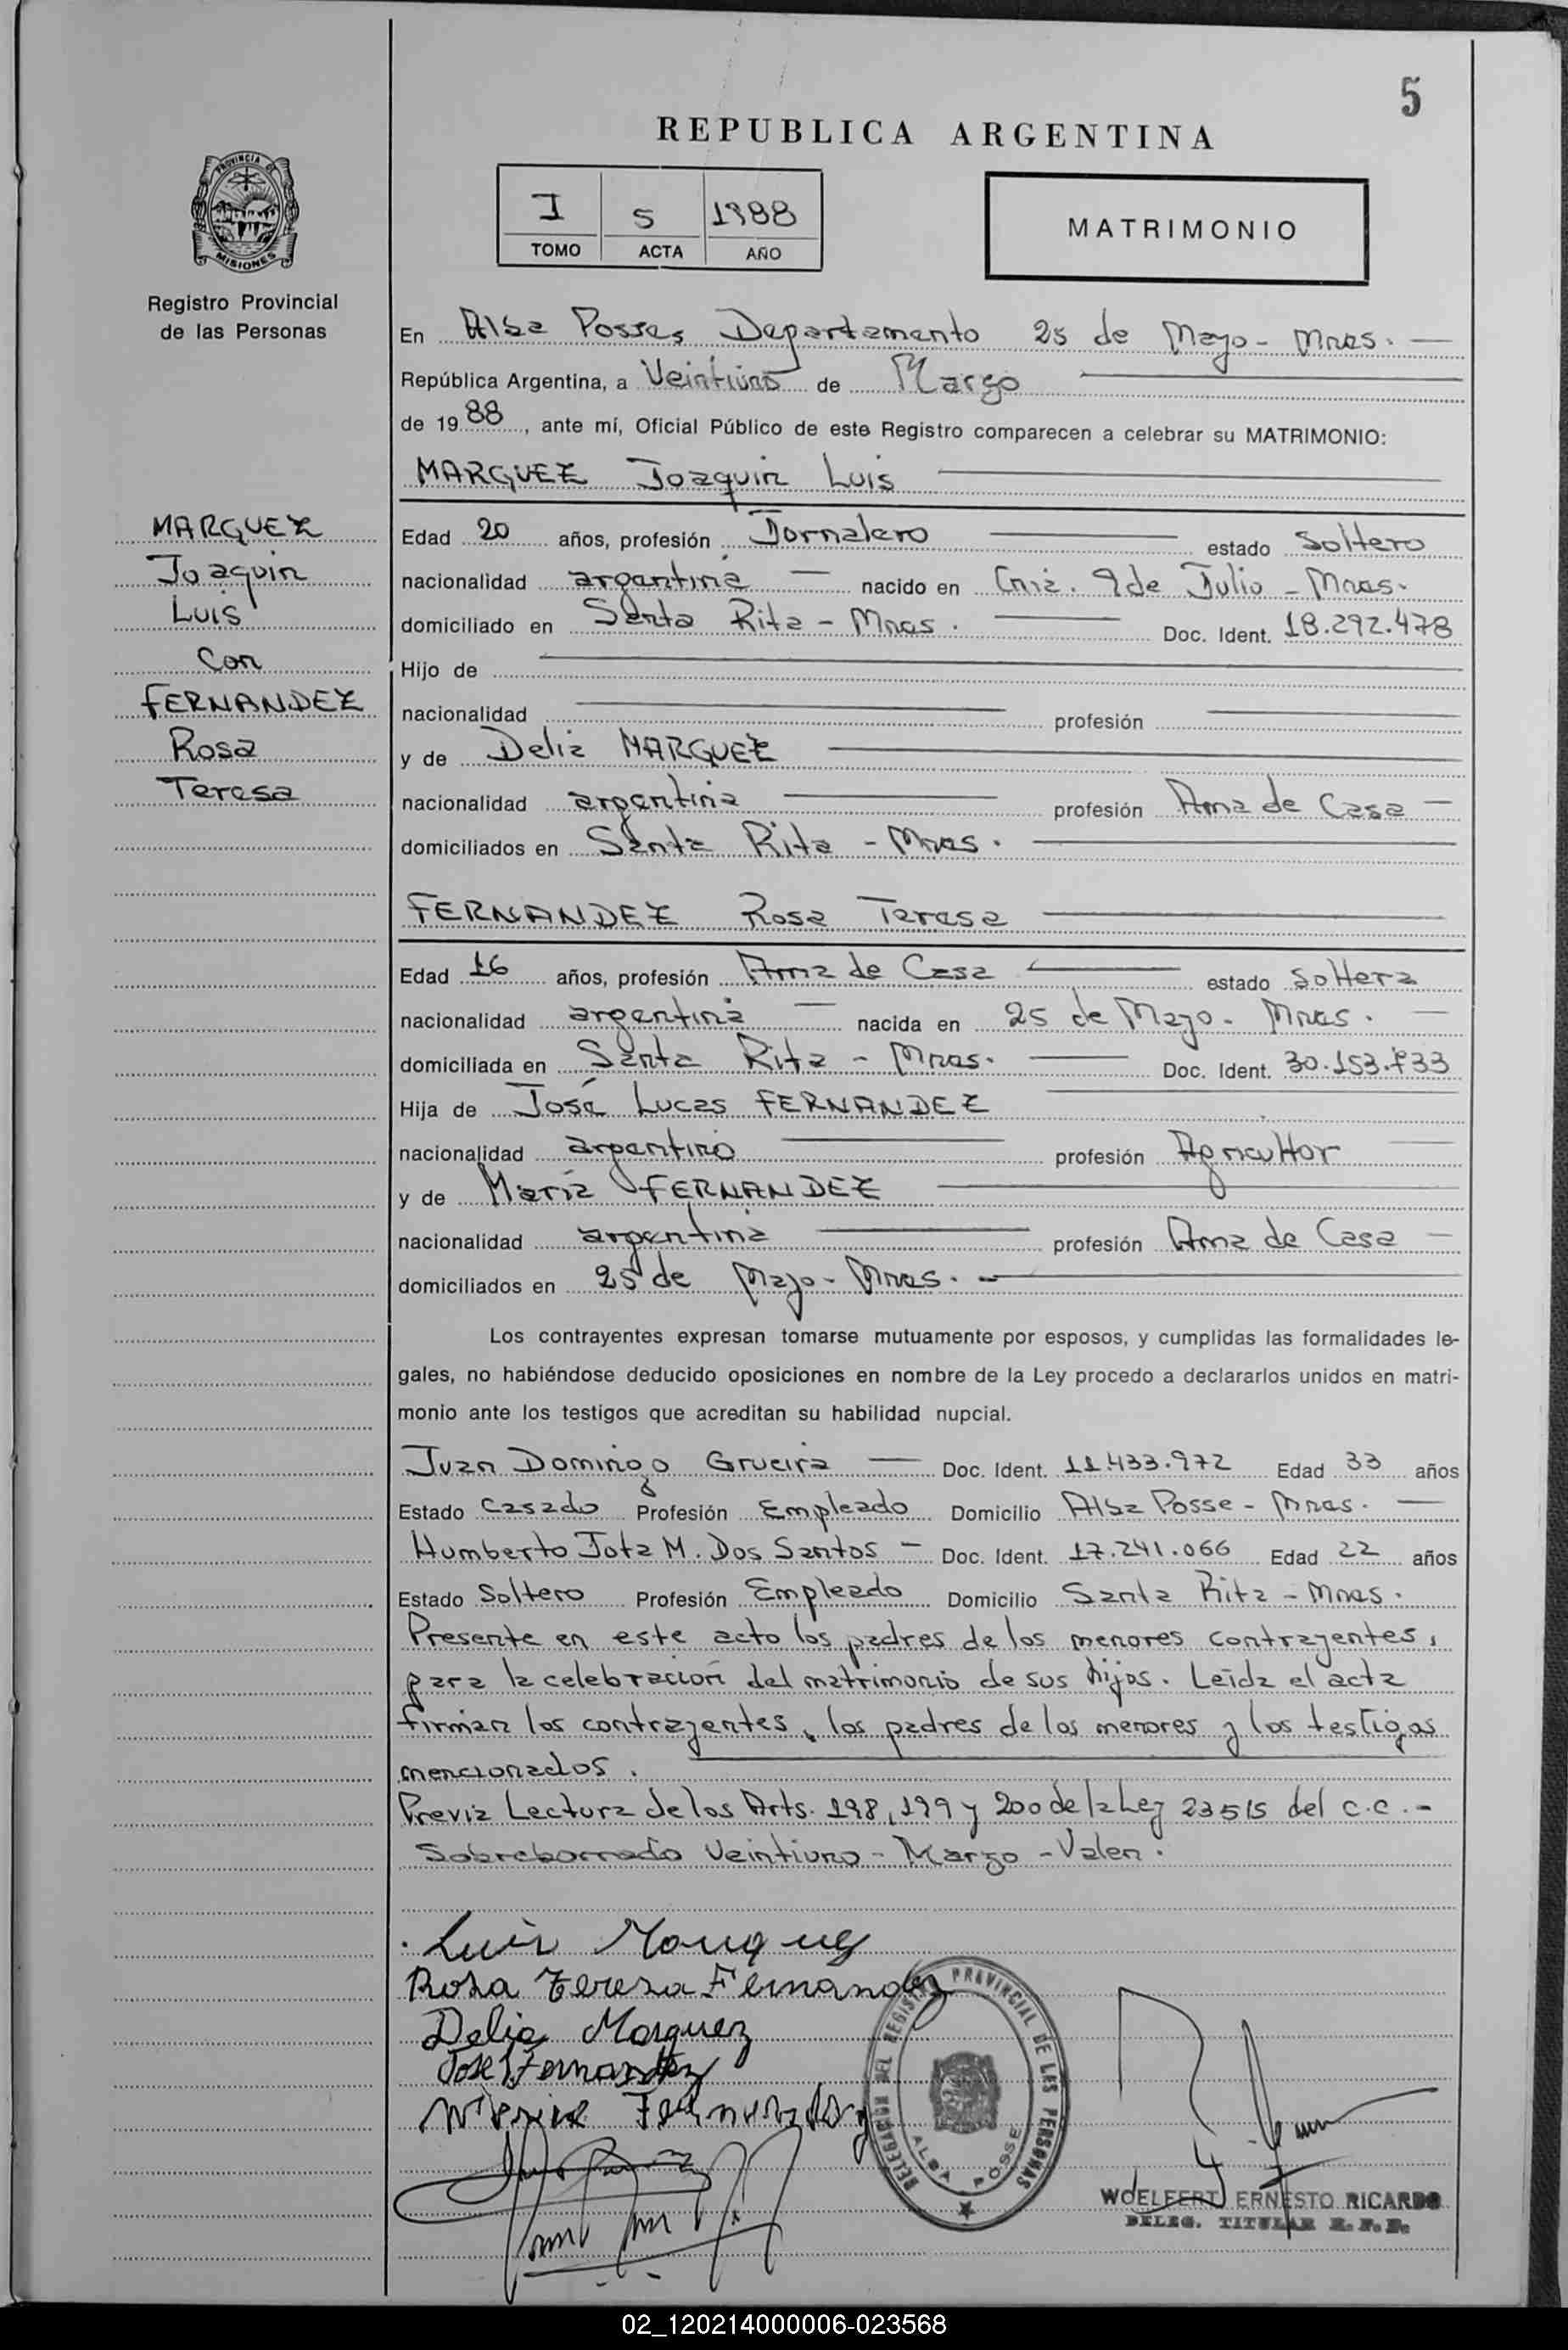 5
REPUBLICA ARGENTINA
I 5 1988
TOMO ACTA AÑO
MATRIMONIO
PROVINCIA DE
MISIONES
Registro Provincial
de las Personas
En Alba Posses Departamento 25 de Mayo - Mnes.
República Argentina, a Veintiuno de Marzo
de 1988, ante mí, Oficial Público de este Registro comparecen a celebrar su MATRIMONIO:
MARQUEZ Joaquin Luis
MARQUEZ
Joaquin
Luis
Con
FERNANDEZ
Rosa
Teresa
Edad 20 años, profesión Jornalero estado Soltero
nacionalidad argentina nacido en Cnia. 9 de Julio - Mnes.
domiciliado en Santa Rita - Mnes. Doc. Ident. 18.292.478
Hijo de
nacionalidad profesión
y de Delia MARQUEZ
nacionalidad argentina profesión Ama de Casa
domiciliados en Santa Rita - Mnes.
FERNANDEZ Rosa Teresa
Edad 16 años, profesión Ama de Casa estado Soltera
nacionalidad argentina nacida en 25 de Mayo - Mnes.
domiciliada en Santa Rita - Mnes. Doc. Ident. 30.153.733
Hija de José Lucas FERNANDEZ
nacionalidad argentino profesión Agricultor
y de María FERNANDEZ
nacionalidad argentina profesión Ama de Casa
domiciliados en 25 de Mayo - Mnes.
Los contrayentes expresan tomarse mutuamente por esposos, y cumplidas las formalidades le-
gales, no habiéndose deducido oposiciones en nombre de la Ley procedo a declararlos unidos en matri-
monio ante los testigos que acreditan su habilidad nupcial.
Juan Domingo Grueira Doc. Ident. 11.433.972 Edad 33 años
Estado Casado Profesión Empleado Domicilio Alba Posse - Mnes.
Humberto Jota M. Dos Santos Doc. Ident. 17.241.066 Edad 22 años
Estado Soltero Profesión Empleado Domicilio Santa Rita - Mnes.
Presente en este acto los padres de los menores contrayentes,
para la celebración del matrimonio de sus hijos. Leída el acta
firman los contrayentes, los padres de los menores y los testigos
mencionados.
Previa Lectura de los Arts. 198, 199 y 200 de la Ley 23515 del C.C.-
Sobreborrado Veintiuno - Marzo - Valen.
Luis Marquez
Rosa Teresa Fernandez
Delia Marquez
Jose L Fernandez
Maria Fernandez
DELEGACION DEL REGISTRO PROVINCIAL DE LAS PERSONAS
ALBA POSSE
WOELFERT ERNESTO RICARDO
DELEG. TITULAR R. P. P.
02_120214000006-023568